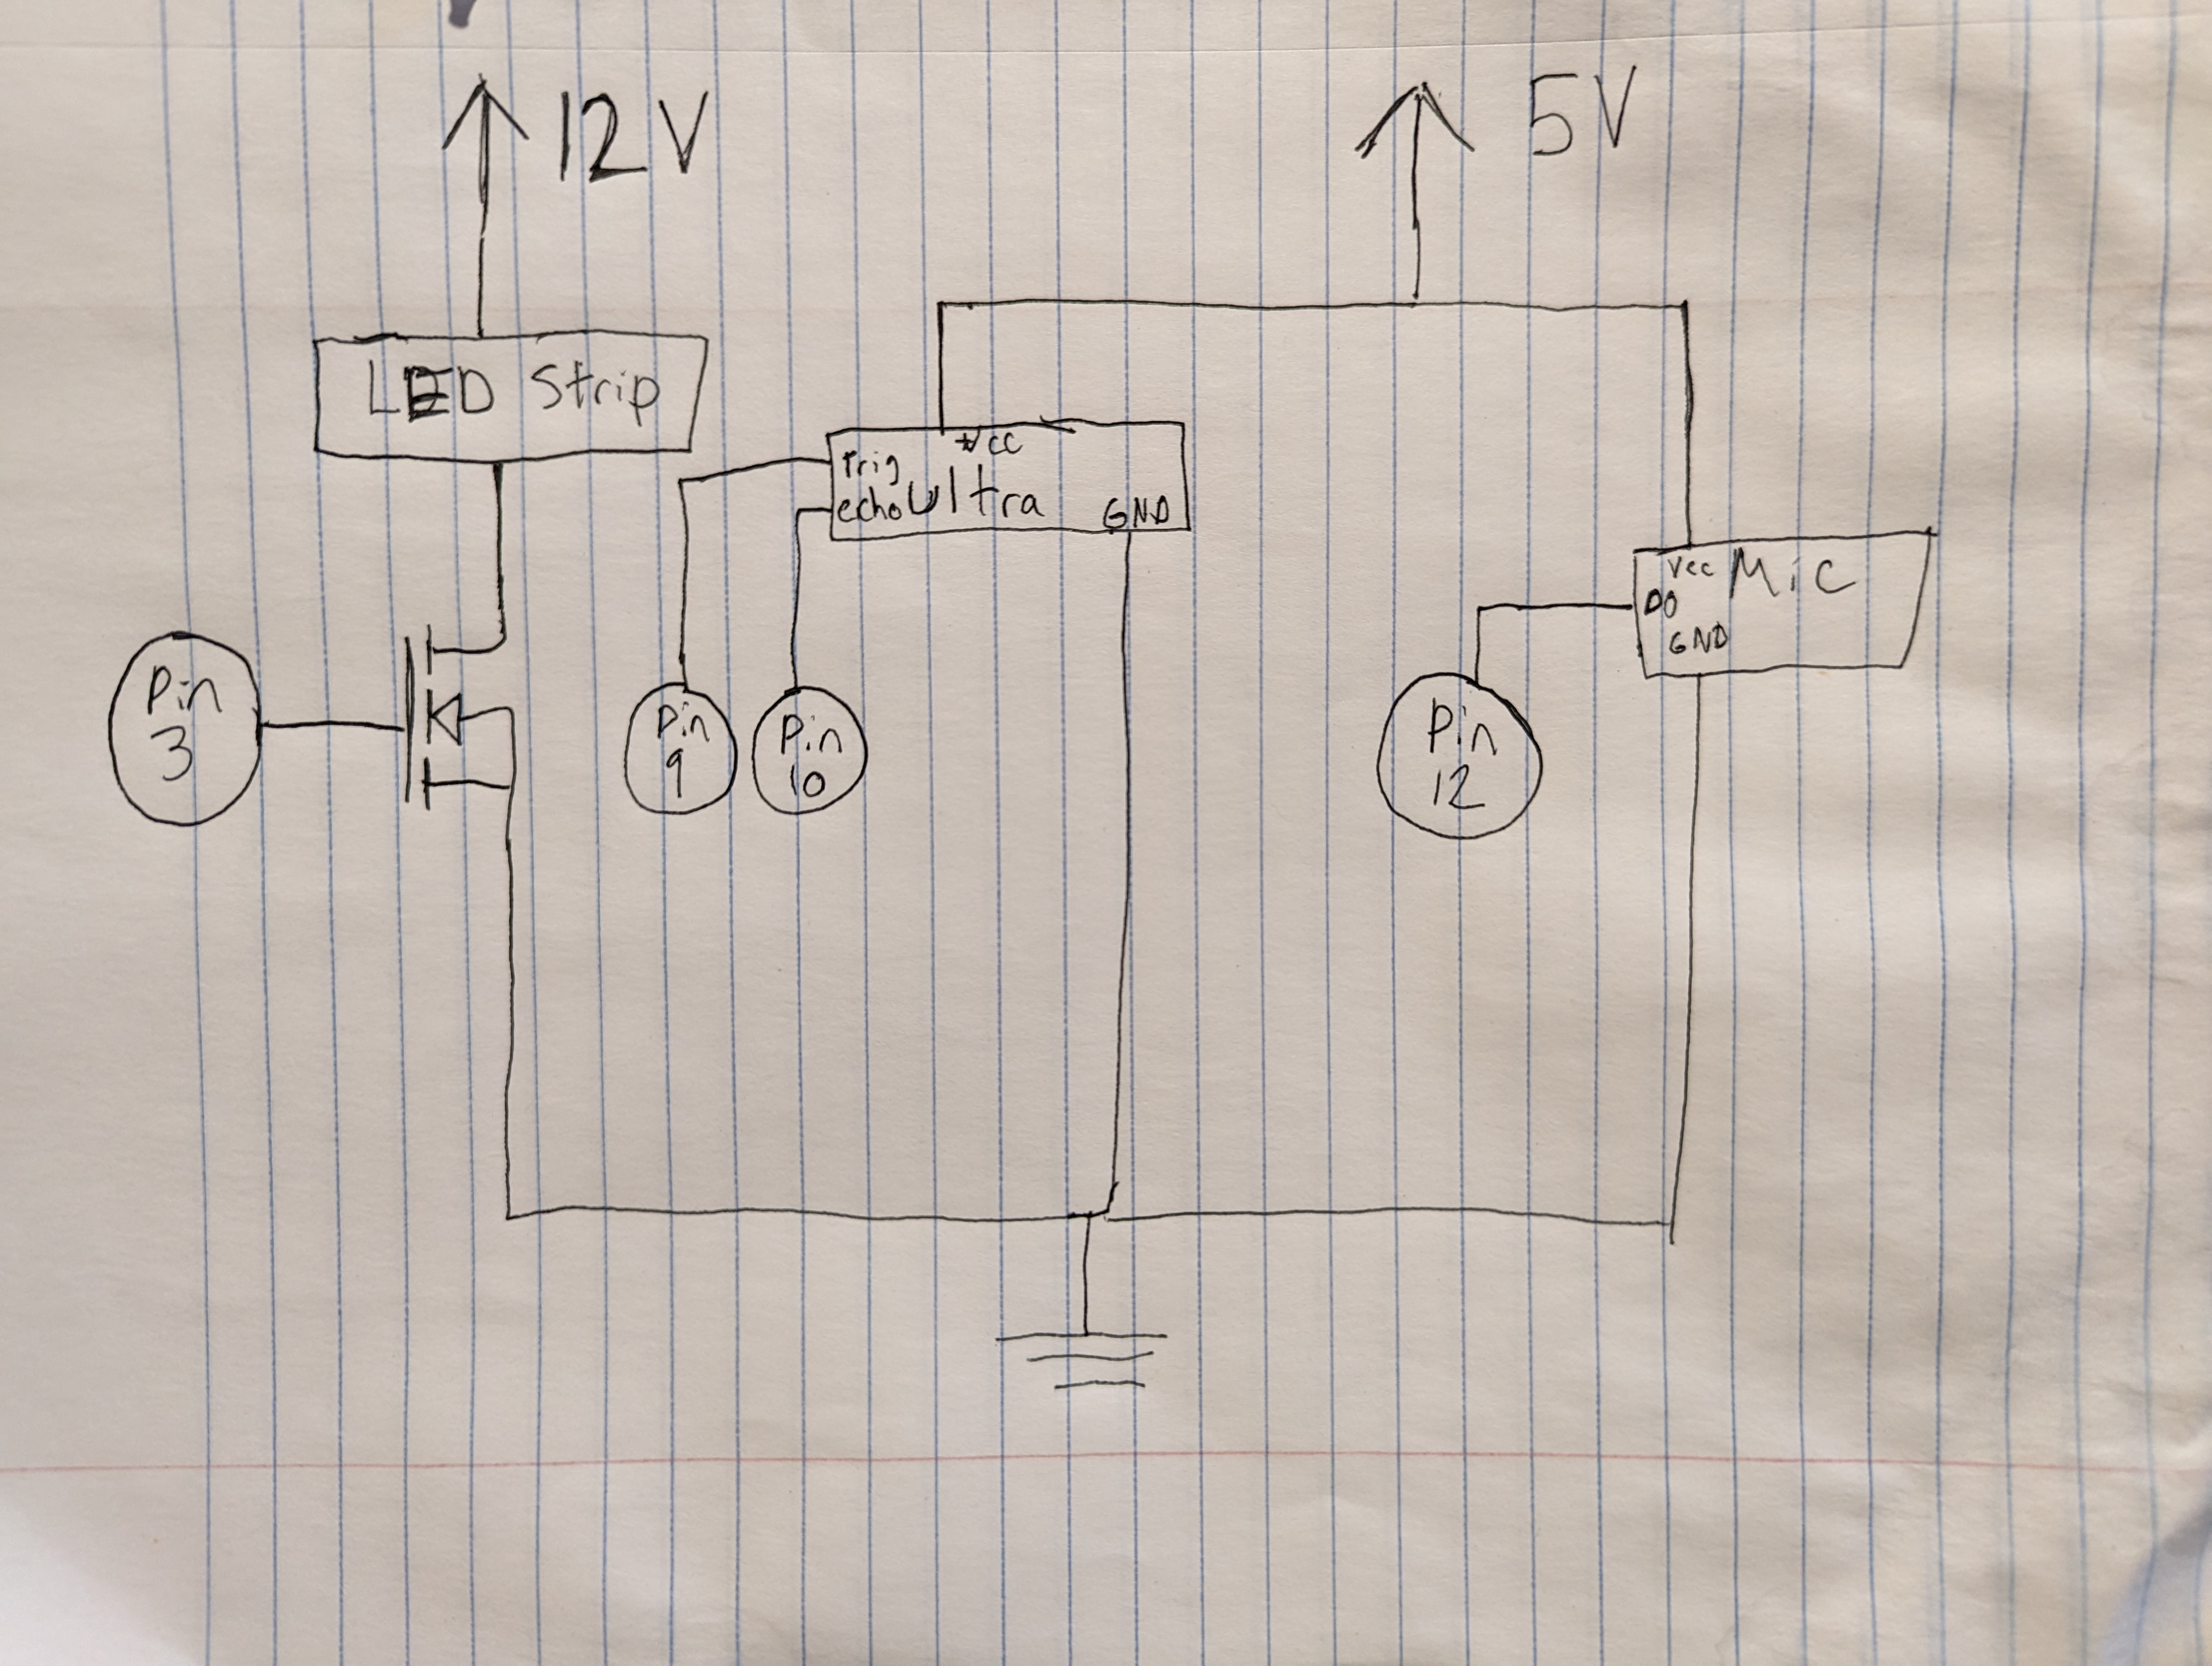 12V
5V
LED Strip
+Vcc
Trig
echo Ultra
GND
Vcc Mic
DO
GND
Pin
3
Pin
9
Pin
10
Pin
12